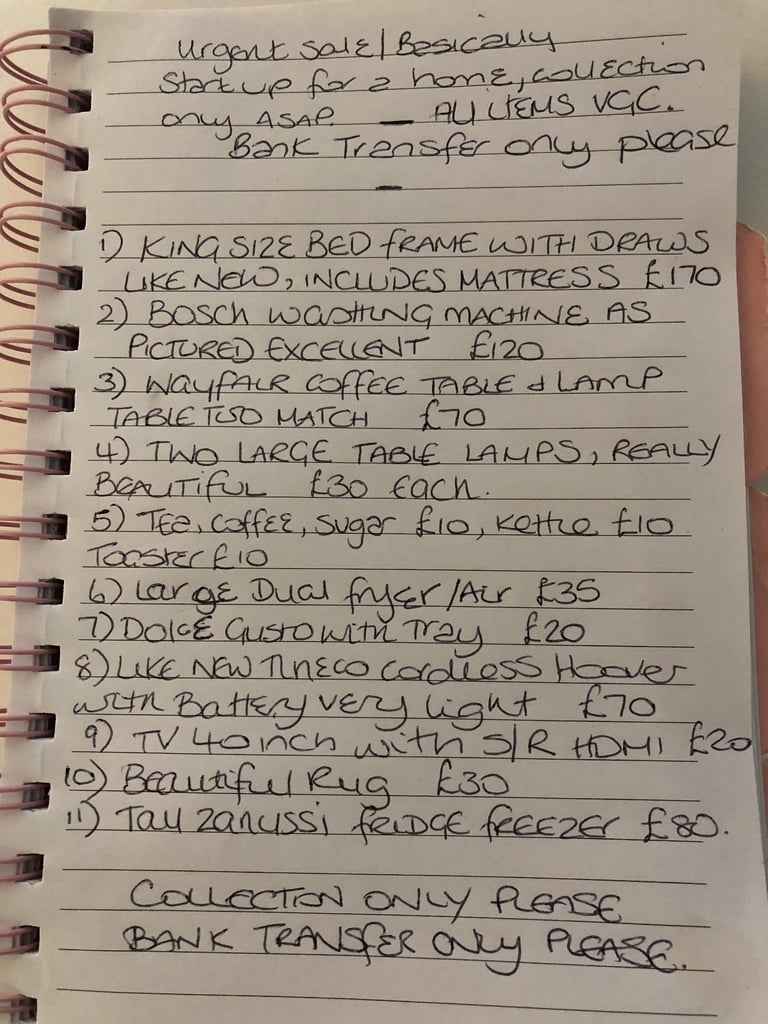 Urgent Sale/Basically
Start up for a home, collection
only ASAP. — All ITEMS VGC.
Bank Transfer only please
—
1) KING SIZE BED FRAME WITH DRAWS
LIKE NEW, INCLUDES MATTRESS £170
2) BOSCH WASHING MACHINE AS
PICTURED EXCELLENT £120
3) WAYFAIR COFFEE TABLE & LAMP
TABLE TSO MATCH £70
4) TWO LARGE TABLE LAMPS, REALLY
BEAUTIFUL £30 Each.
5) Tea, Coffee, Sugar £10, Kettle £10
Toaster £10
6) Large Dual fryer/Air £35
7) Dolce Gusto with Tray £20
8) LIKE NEW Tineco Cordless Hoover
with Battery very light £70
9) TV 40 inch with S/R HDMI £20
10) Beautiful Rug £30
11) Tall Zanussi FRIDGE FREEZER £80.
COLLECTION ONLY PLEASE
BANK TRANSFER ONLY PLEASE.